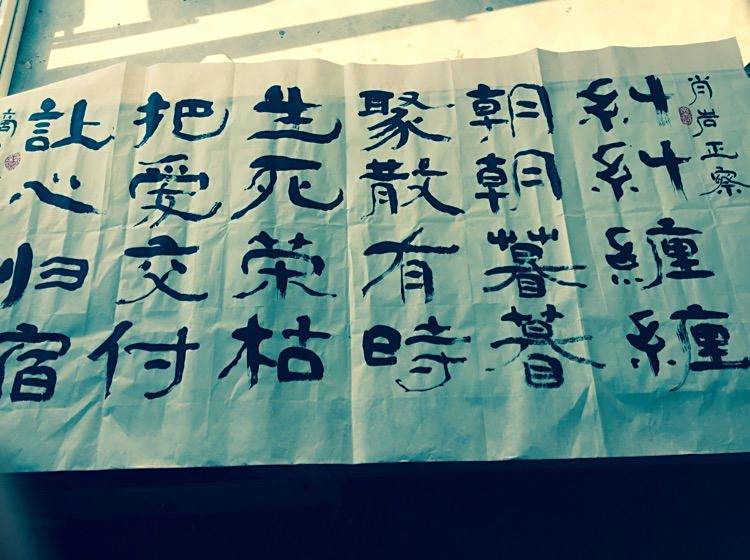 肖岩正察
糾糾纏纏
朝朝暮暮
聚散有時
生死荣枯
把爱交付
让心归宿